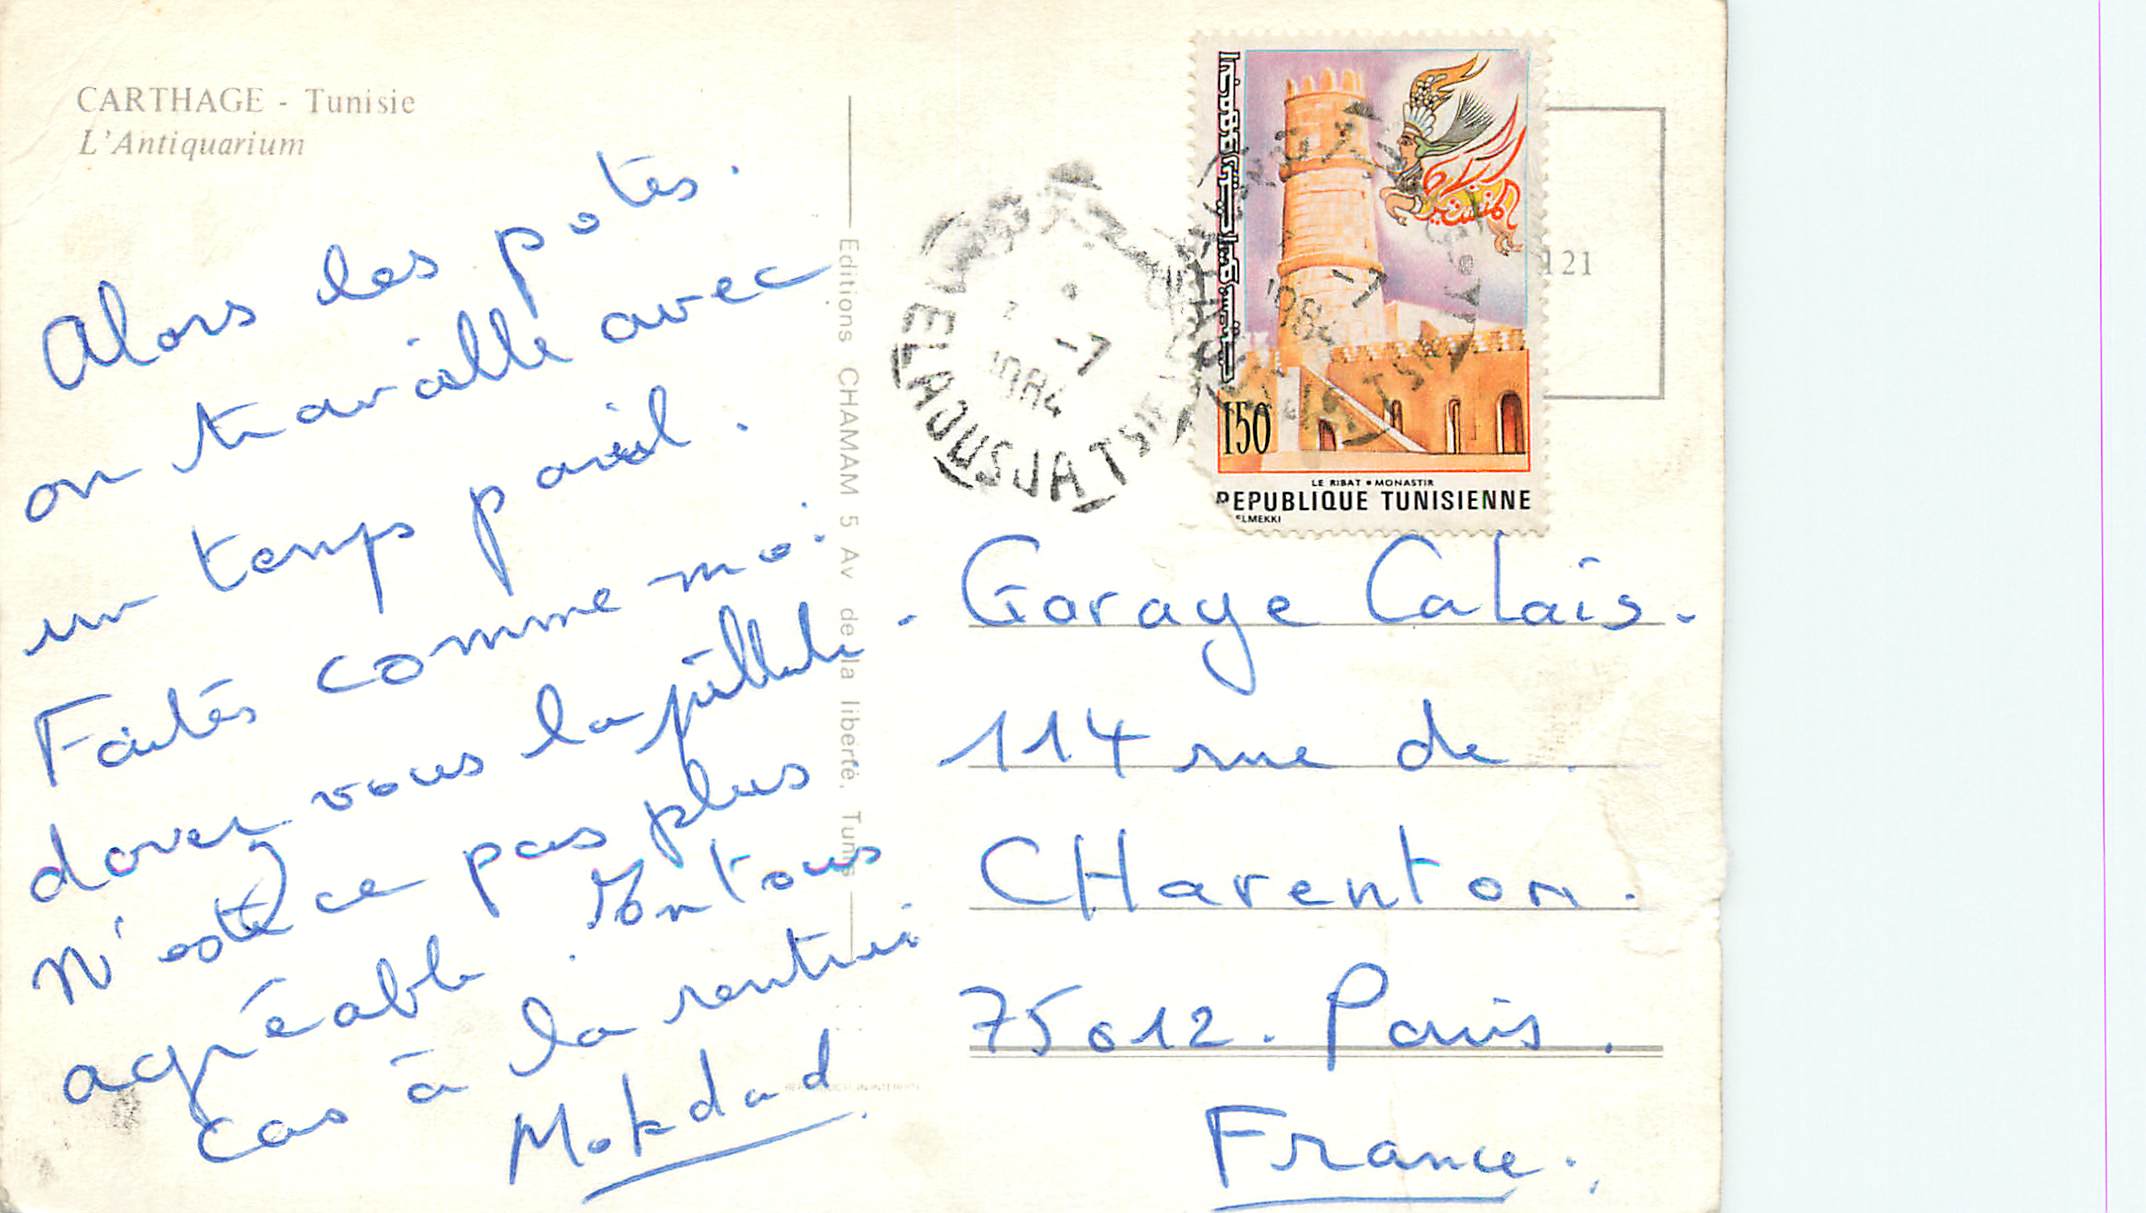 CARTHAGE - Tunisie
L'Antiquarium
Alors les potes.
on travaille avec
un temps pareil.
Faites comme moi
dorer vous la pillule.
N'est ce pas plus
agréable. En tous
cas à la rentrée
Mokdad
Editions CHAMAM 5 Av de la liberté. Tunis
EL AOUSJA TSIE
-7
1984
-7
1984
121
150
LE RIBAT • MONASTIR
REPUBLIQUE TUNISIENNE
ELMEKKI
Garage Calais.
114 rue de
CHarenton.
75012. Paris.
France.